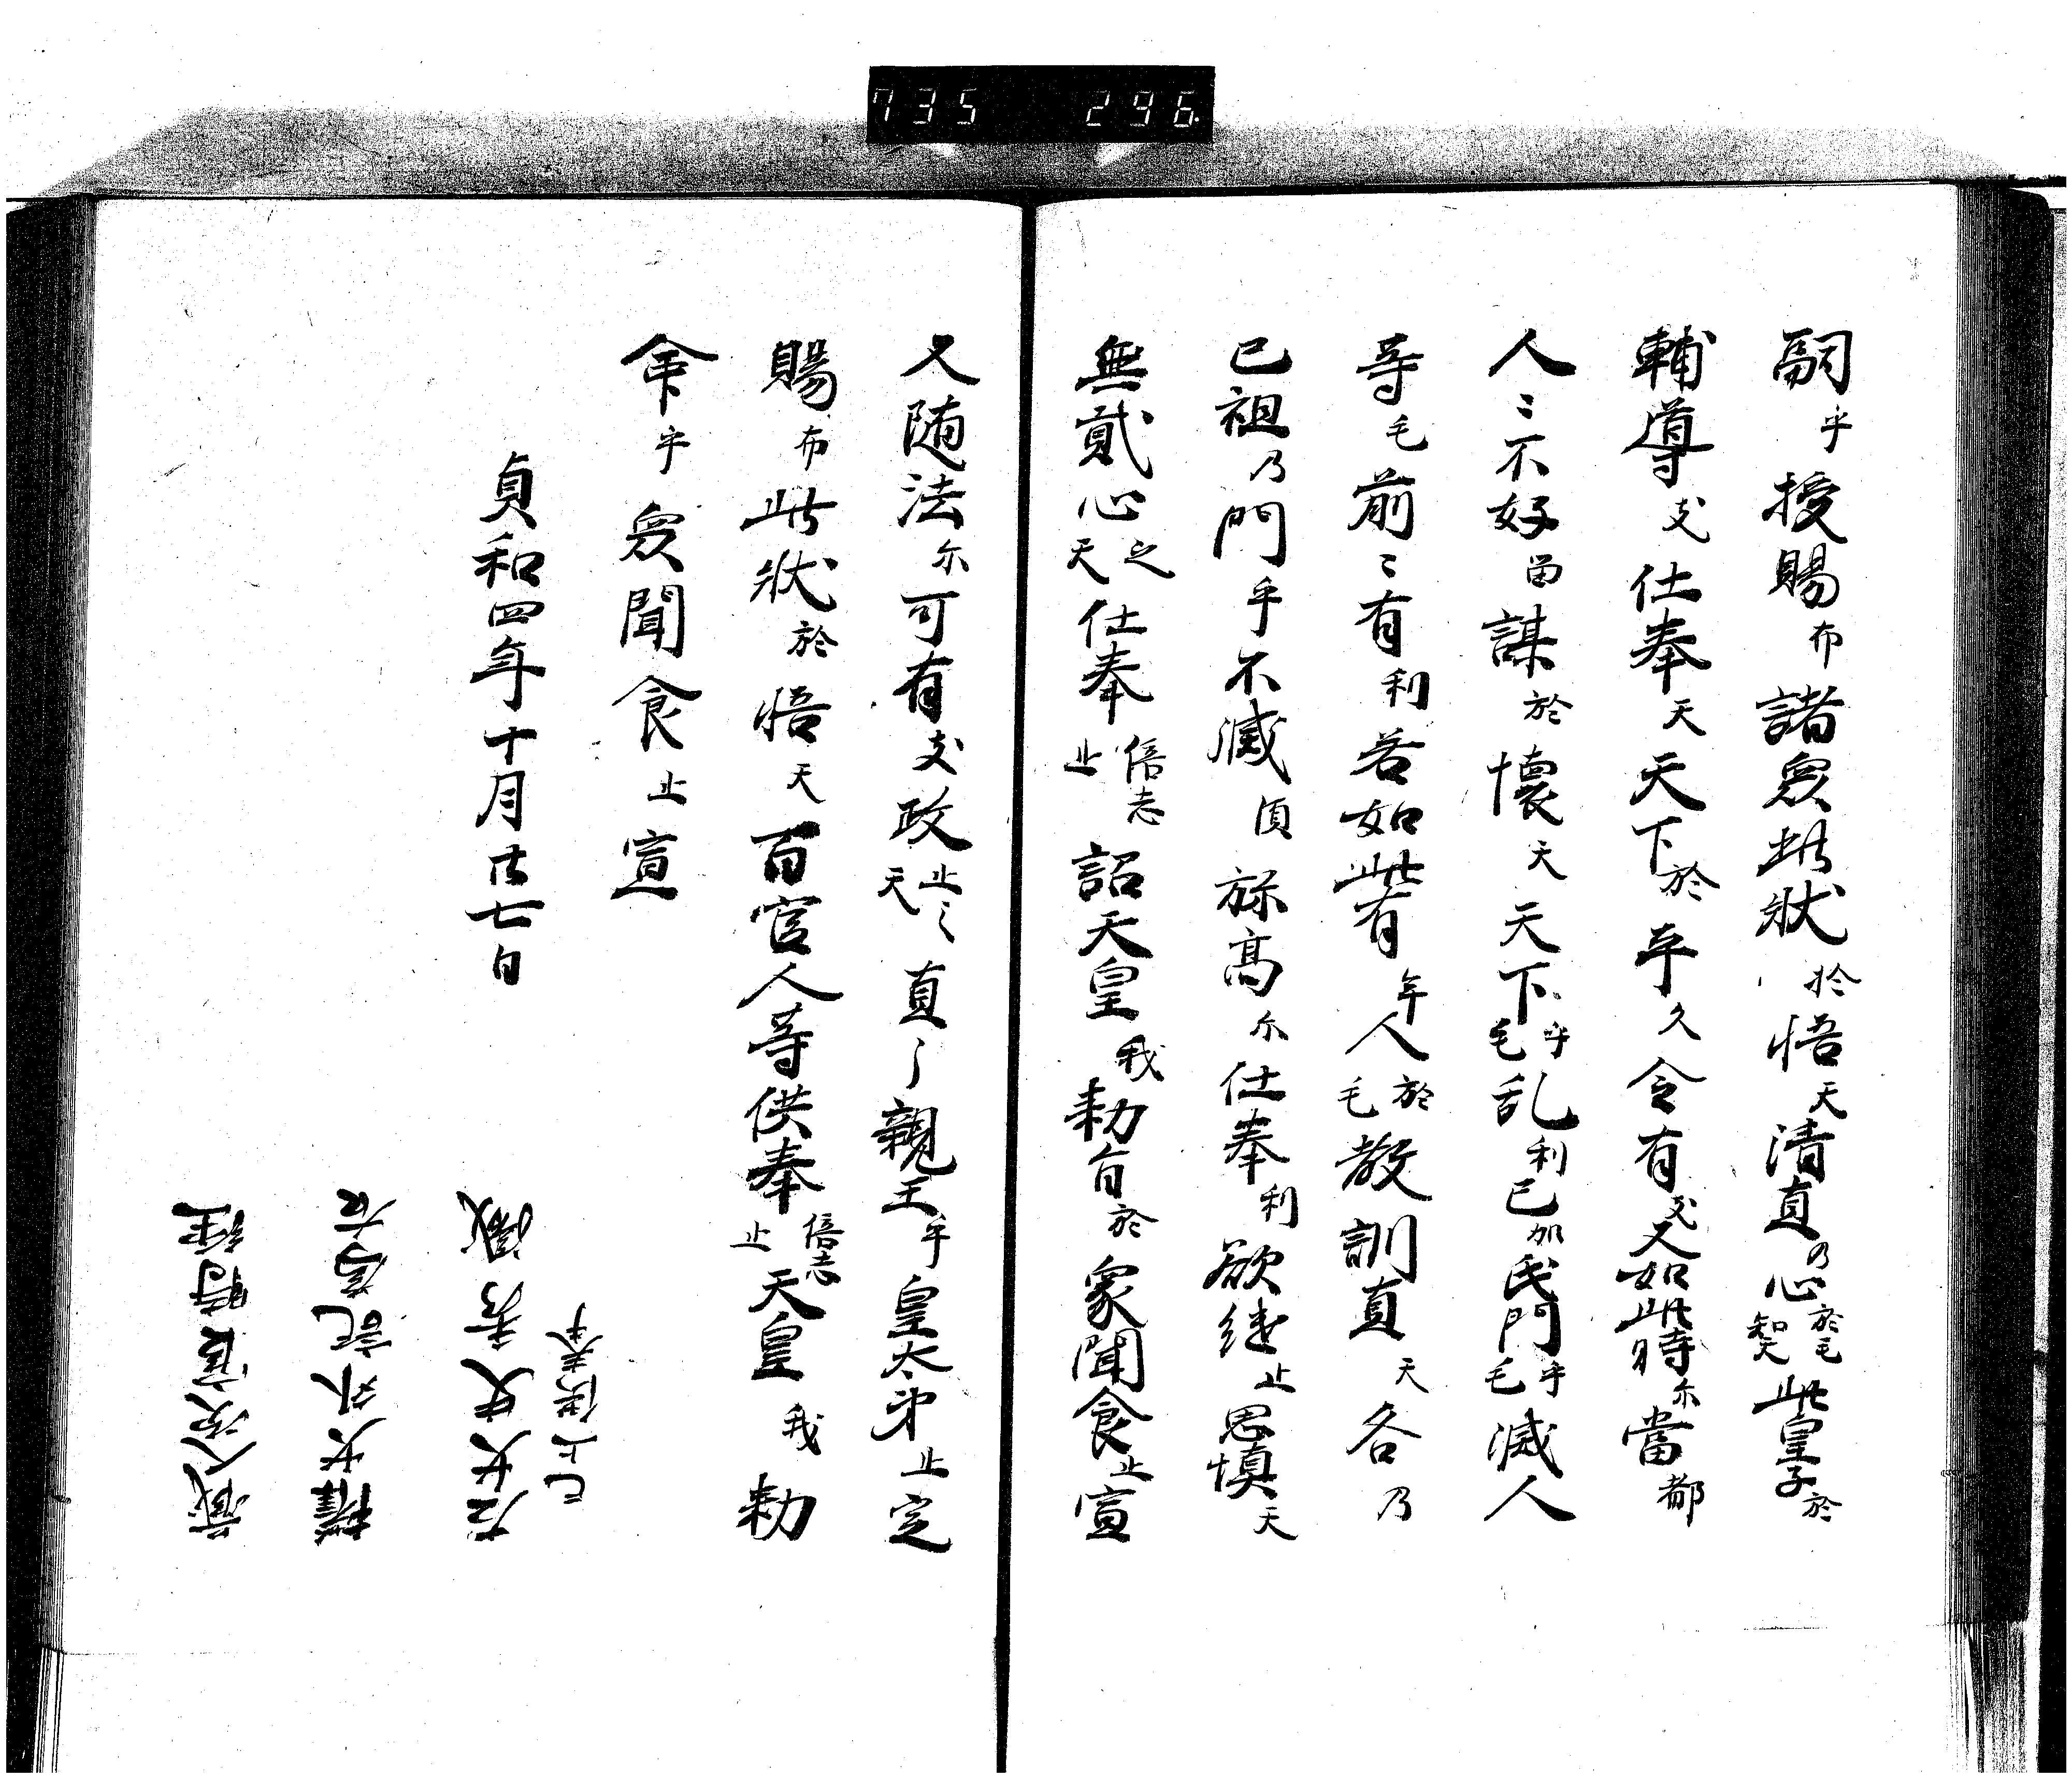 735 296
嗣乎授賜布諸衆此状於悟天清直乃心於毛知天此皇子於
輔導支仕奉天天下於平久令有支又如此時尓當都
人〻不好留謀於懐天天下乎毛乱利己加氏門乎毛滅人
等毛前〻有利若如此有牟人於毛教訓直天各乃
己祖乃門乎不滅須祢高尓仕奉利欲継止思慎天
無貳心之天仕奉倍志止詔天皇我勅旨於衆聞食止宣
又随法尓可有支政止之天直〻親王乎皇太弟止定
賜布此状於悟天百官人等供奉倍志止天皇我勅
命乎衆聞食止宣
貞和四年十月廿七日
已上使奉
左大史秀
権大外記
蔵人次官時経